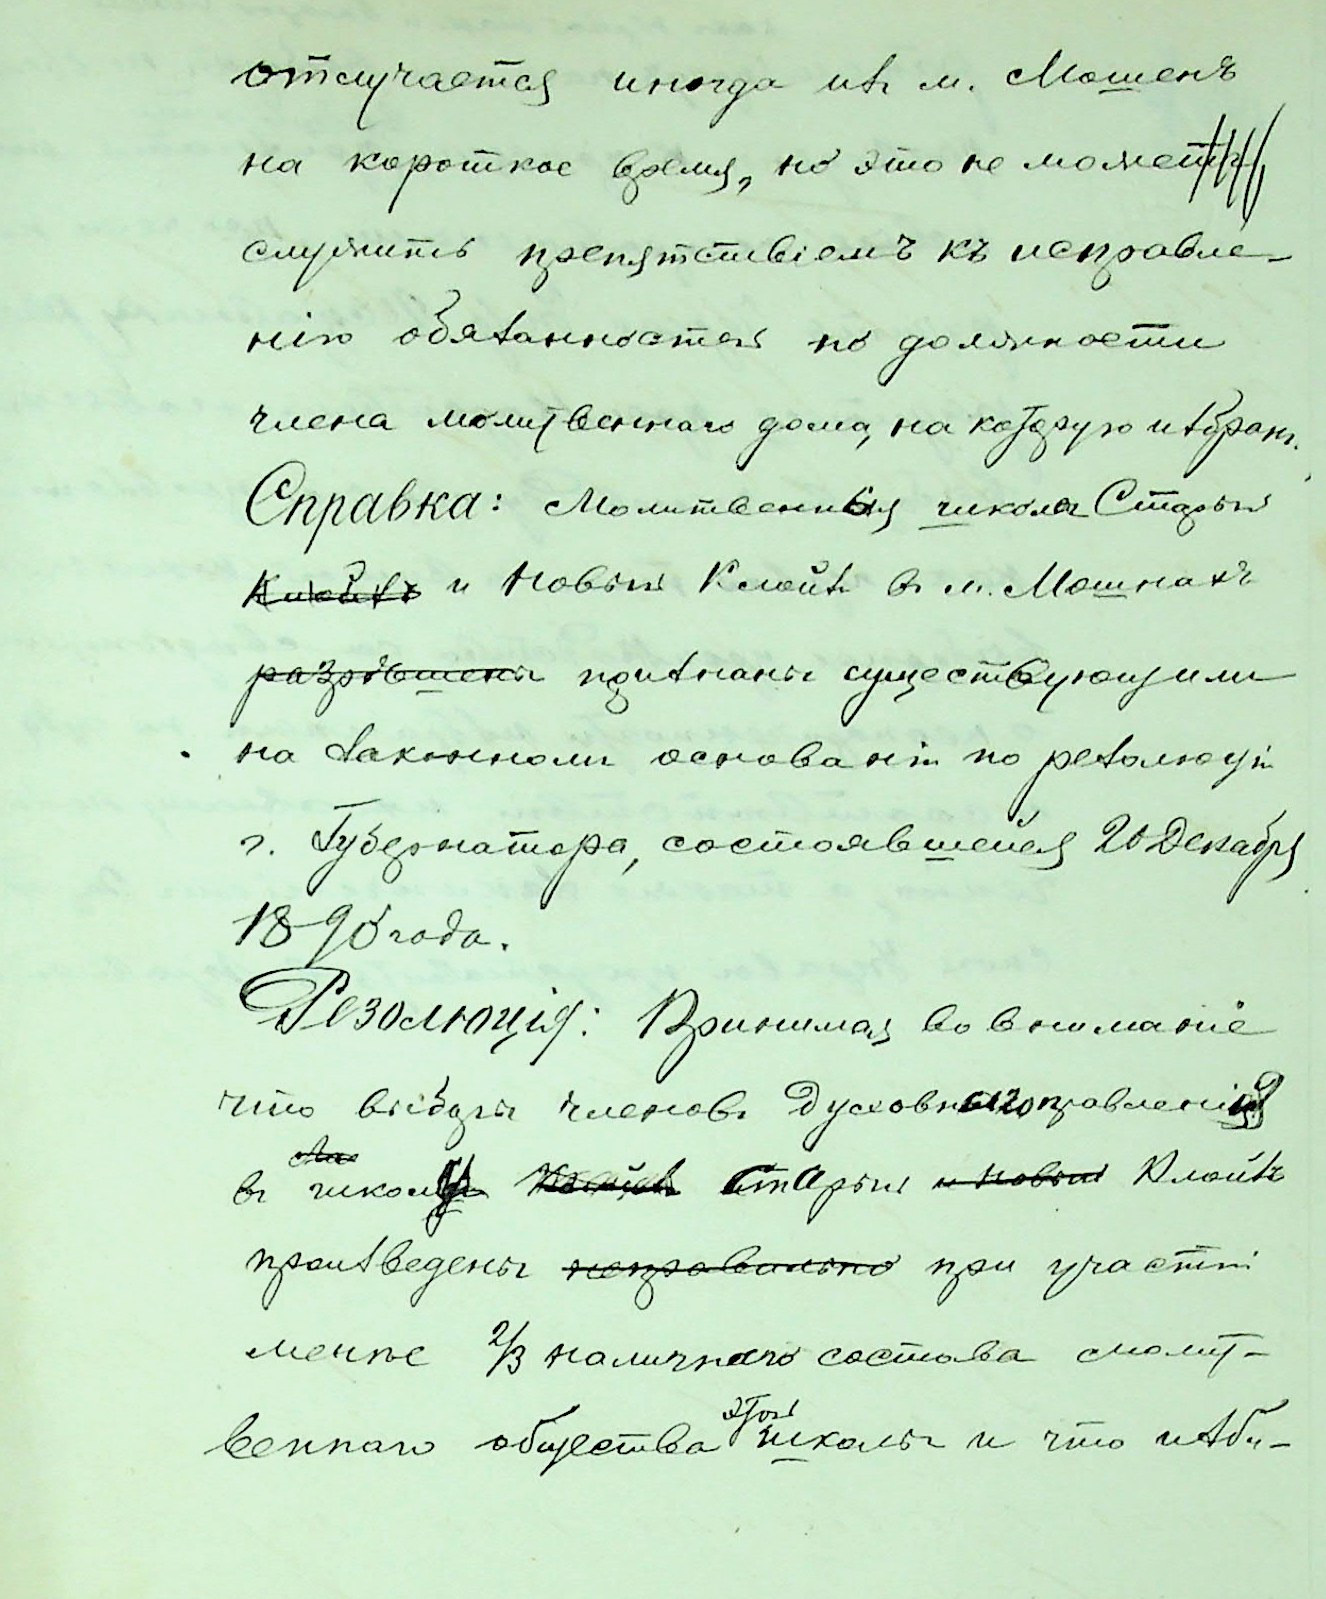 отлучается иногда изъ м. Мошенъ
на короткое время, но это не можетъ
служить препятствіемъ къ исправле-
нію обязанностей по должности
члена молитвеннаго дома, на которую избранъ.
Справка: Молитвенныя школы Старый
Клойзъ и Новый Клойзъ въ м. Мошнахъ
разрѣшены признаны существующими
на законномъ основаніи по резолюціи
г. Губернатора, состоявшейся 20 Декабря
1890 года.
Резолюція: Принимая во вниманіе
что выборы членовъ Духовнаго правленія
въ школу Старый и Новый Клойзъ
произведены неправильно при участіи
менѣе 2/3 наличнаго состава молит-
веннаго общества этой школы и что изби-